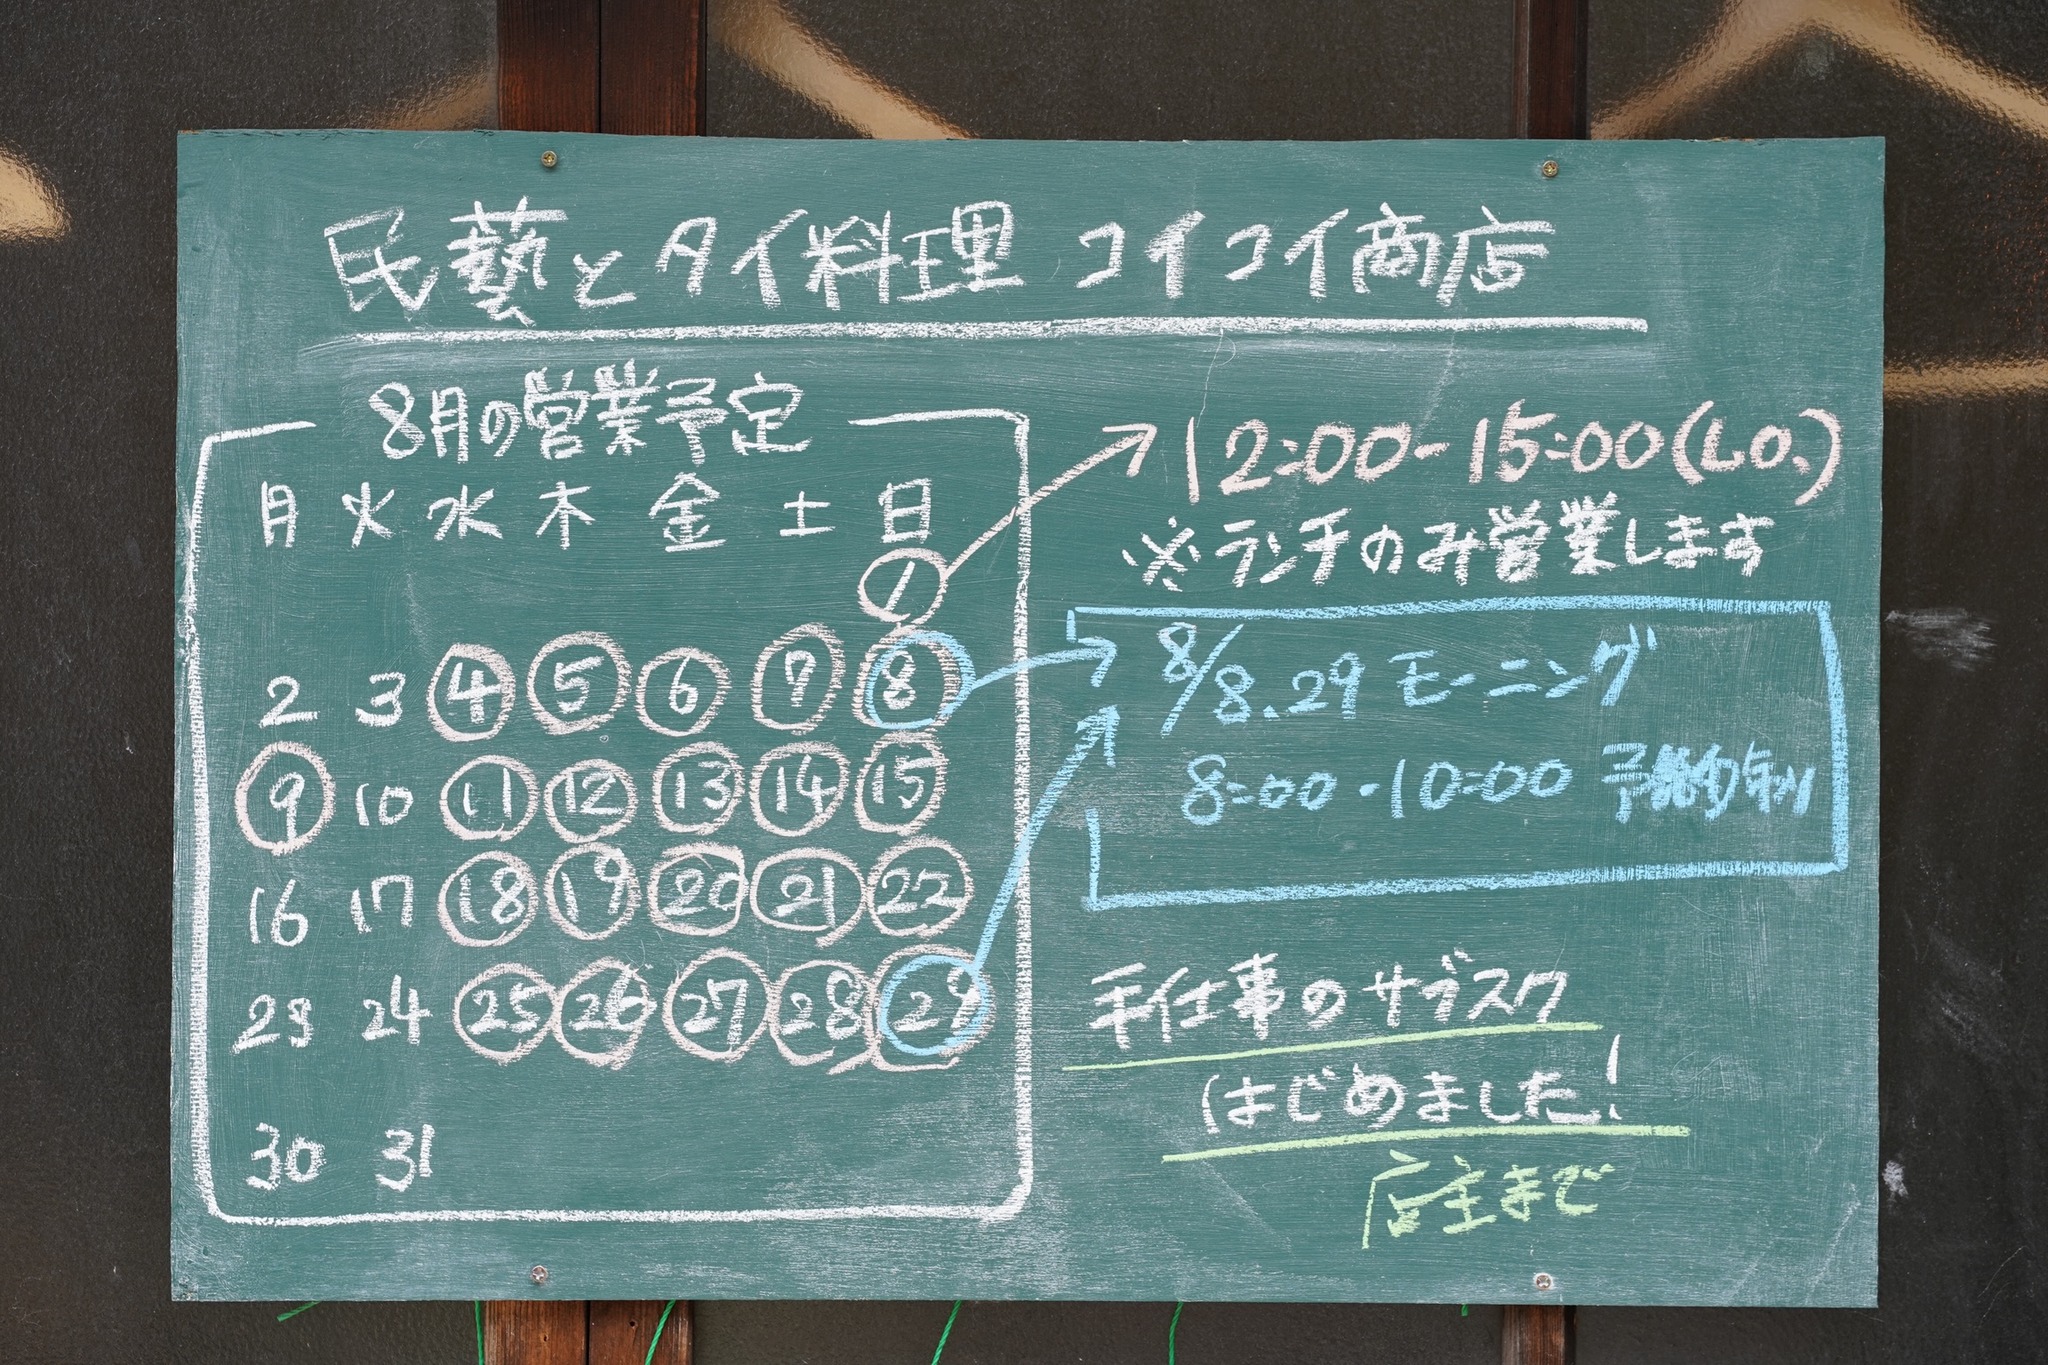 民藝とタイ料理 コイコイ商店
8月の営業予定
月 火 水 木 金 土 日
1
2 3 4 5 6 7 8
9 10 11 12 13 14 15
16 17 18 19 20 21 22
23 24 25 26 27 28 29
30 31
12:00-15:00(LO.)
※ランチのみ営業します
8/8.29 モーニング
8:00-10:00 予約制
手仕事のサブスク
はじめました!
店主まで